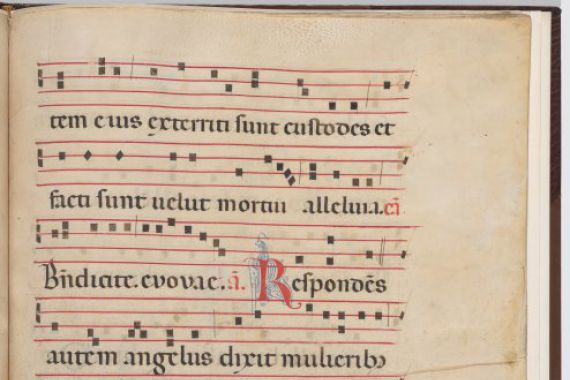 tem eius exterriti sunt custodes et
facti sunt uelut mortui alleluia. cā
Bn̄dicite. evovae. ā. Respondēs
autem angelus dixit mulieribꝫ